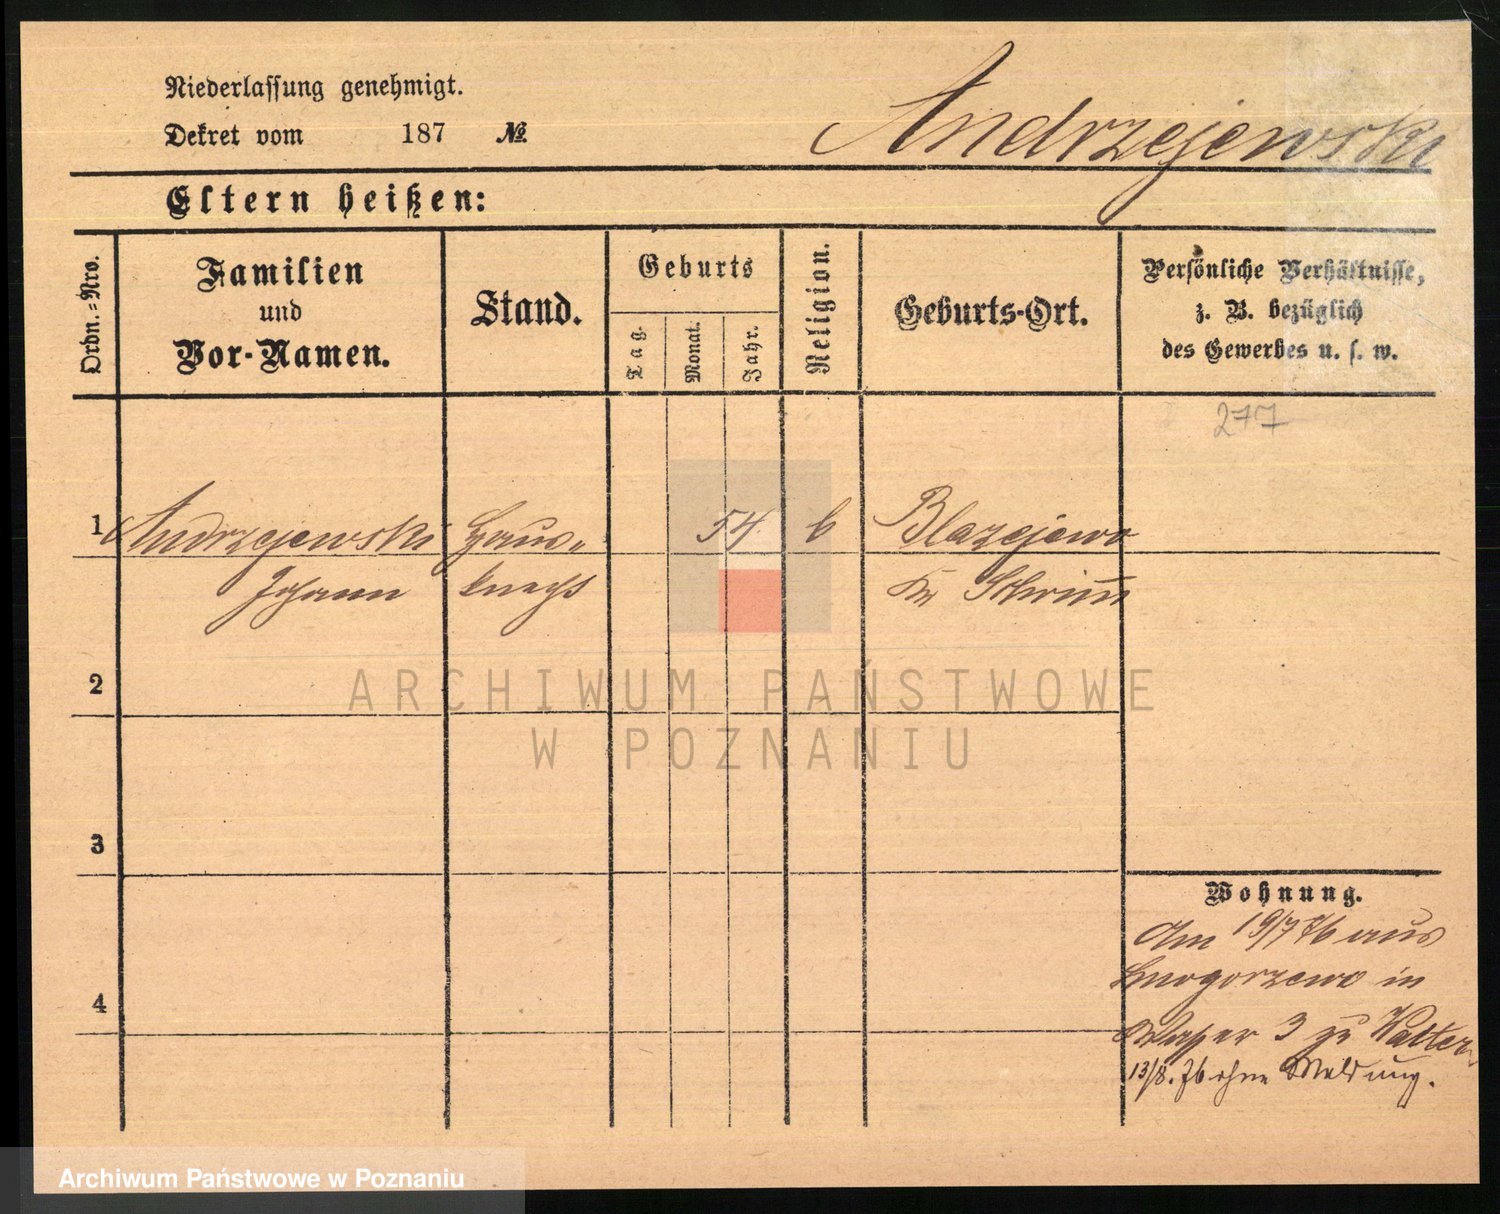 Niederlassung genehmigt.
Dekret vom 187 №
Andrzejewski
Eltern heißen:
Ordn.-Nro.
Familien
und
Vor-Namen.
Stand.
Geburts
Tag.
Monat.
Jahr.
Religion.
Geburts-Ort.
Persönliche Verhältnisse,
z. B. bezüglich
des Gewerbes u. s. w.
277
1 Andrzejewski Haus- 54. k Blazejewo
Johann knecht Kr Schrimm
2
3
4
Wohnung.
Am 19/7 76 aus
in
3 zu Walter
13/8. 76 ohne Meldung.
ARCHIWUM PAŃSTWOWE
W POZNANIU
Archiwum Państwowe w Poznaniu